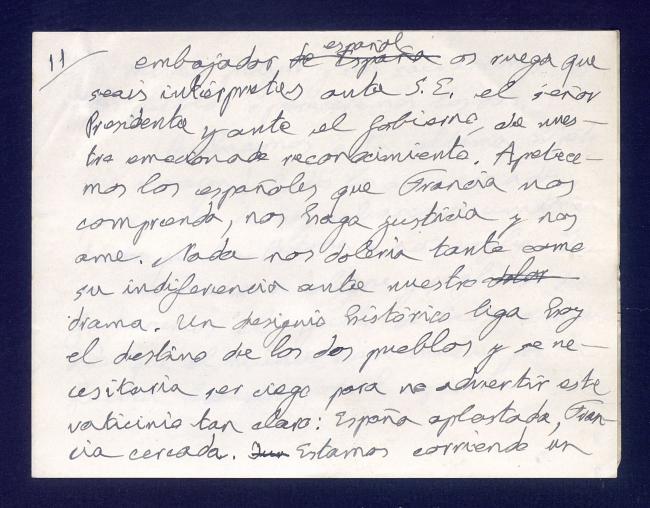 11
embajador de España español os ruega que
seais intérpretes ante S.E. el señor
Presidente y ante el Gobierno, de nues-
tro emocionado reconocimiento. Apetece-
mos los españoles que Francia nos
comprenda, nos haga justicia y nos
ame. Nada nos dolería tanto como
su indiferencia ante nuestro dolor
drama. Un designio histórico liga hoy
el destino de los dos pueblos y se ne-
cesitaria ser ciego para no advertir este
vaticinio tan claro: España aplastada, Fran-
cia cercada. Estamos corriendo un